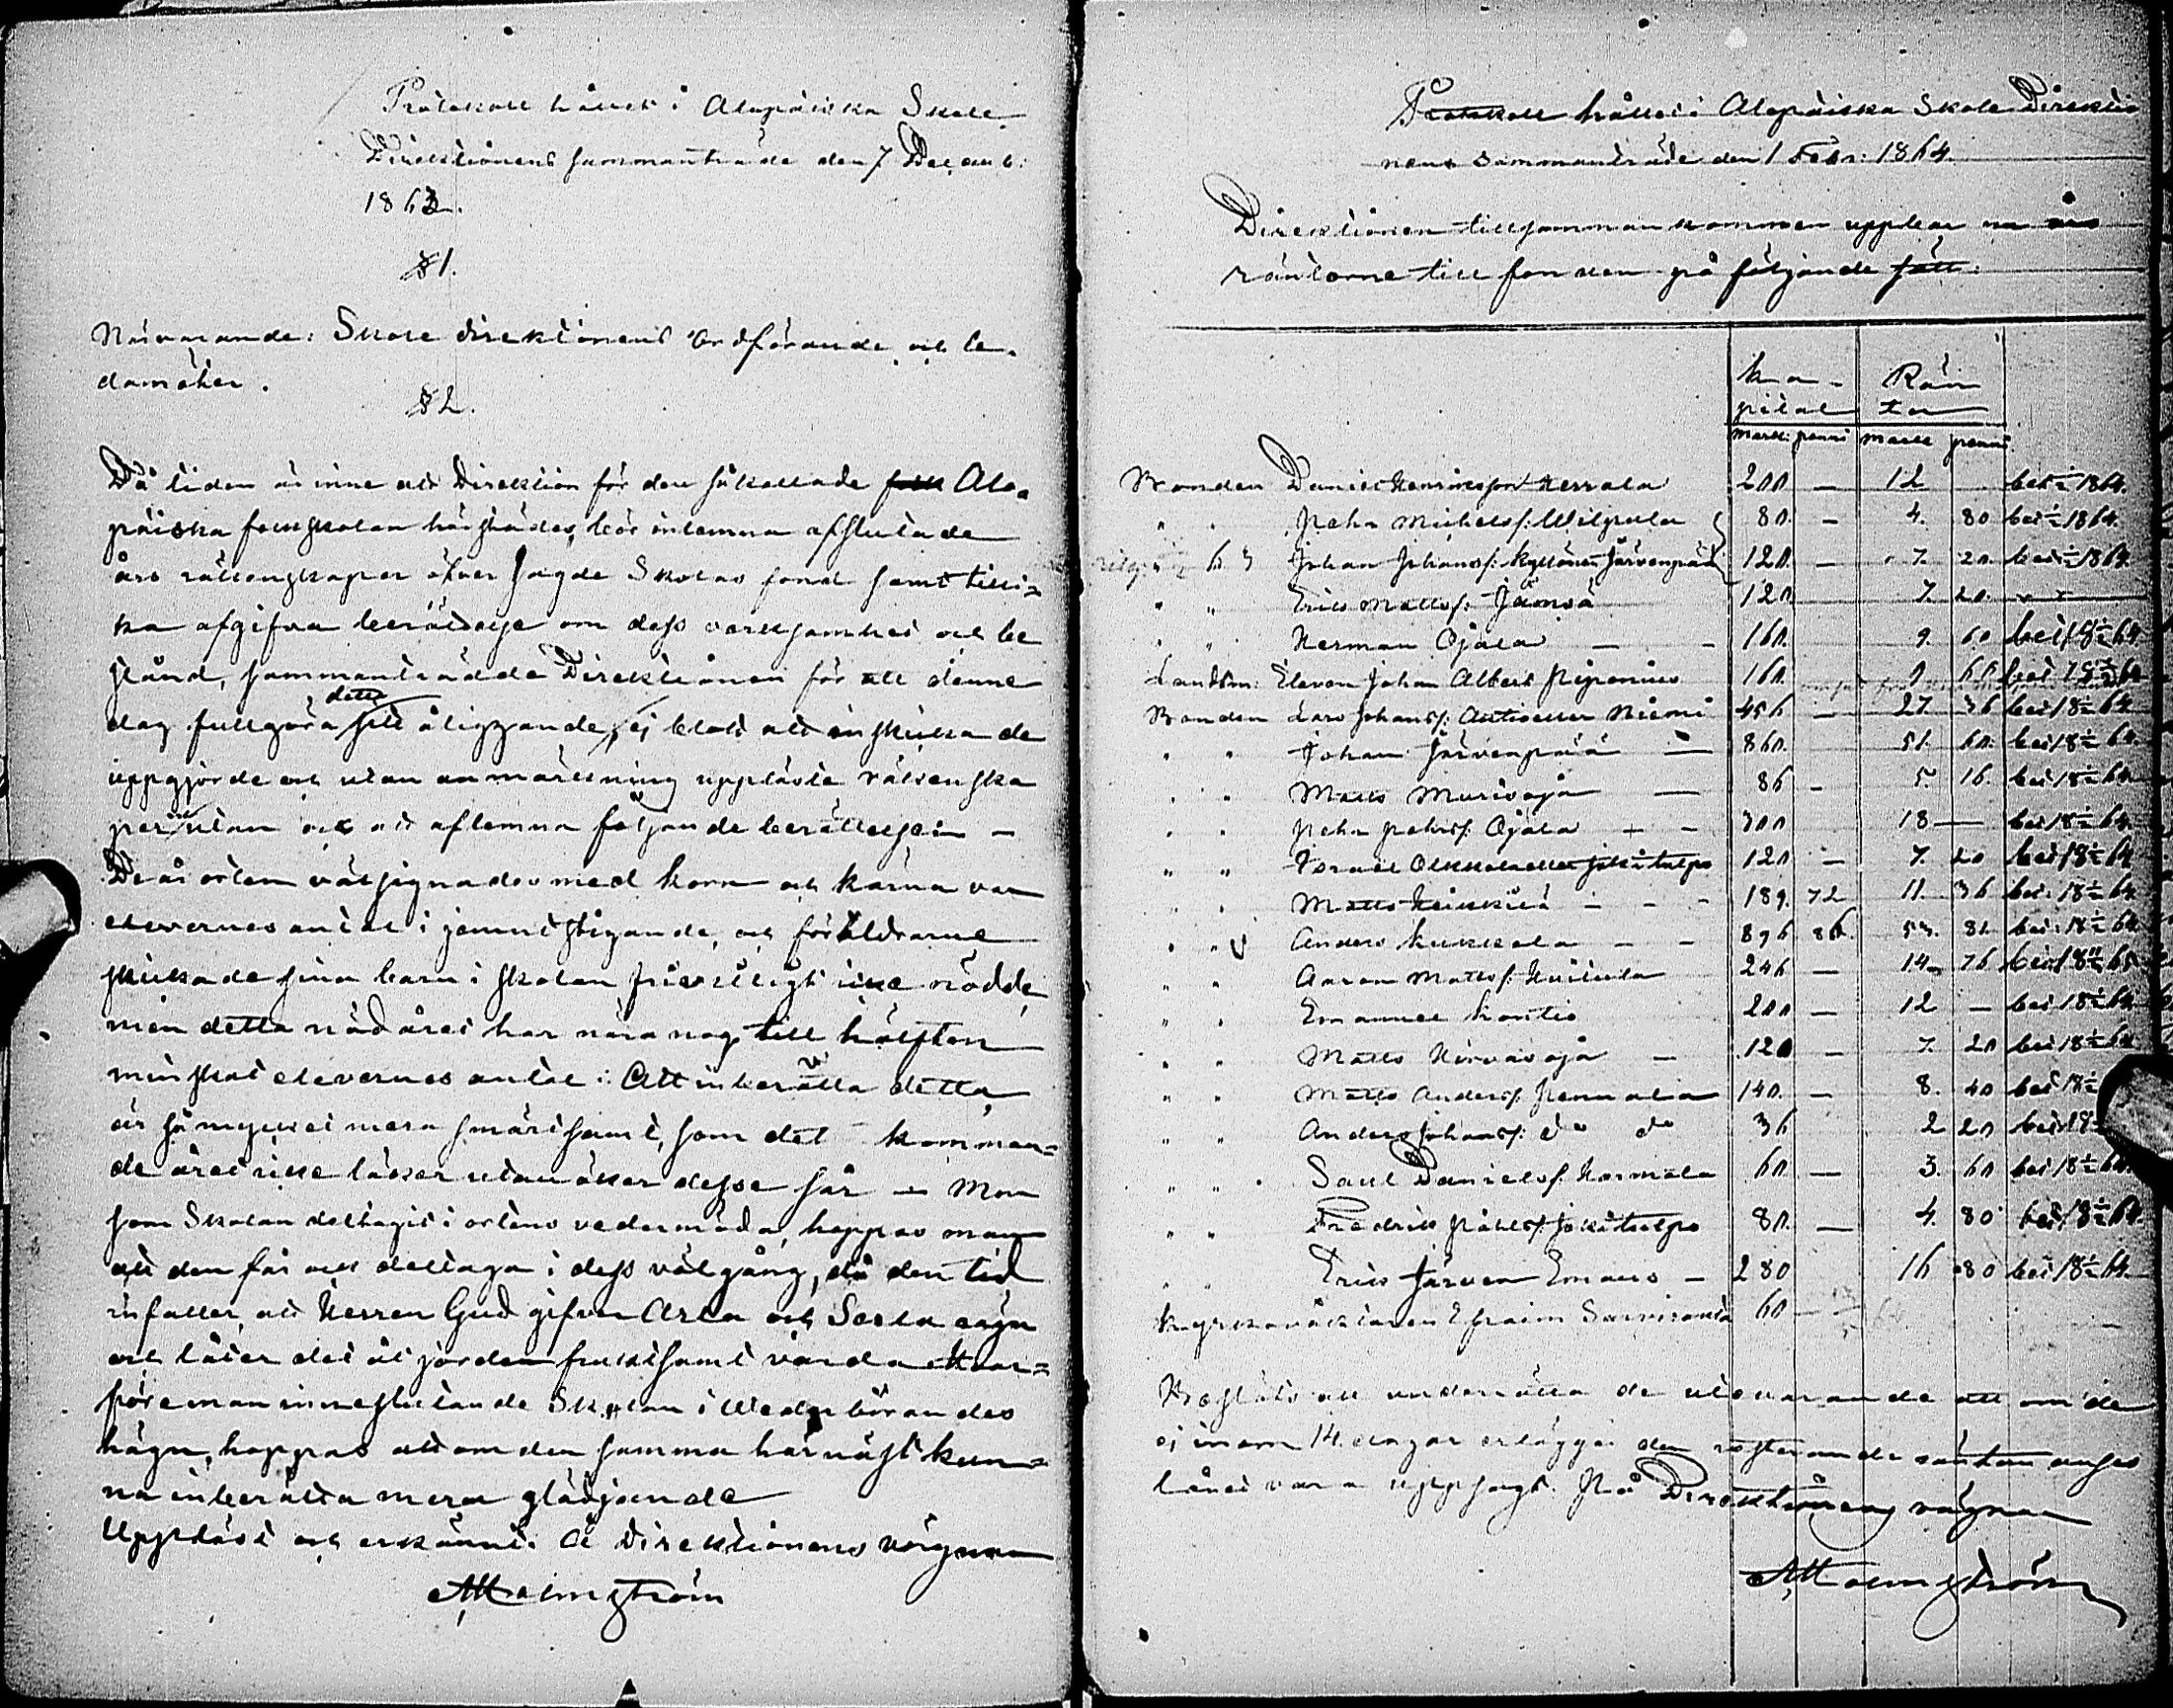 Protokoll hållet i Alapäiska Skole
Direktionens sammanträde den 7 Decemb:
1863.
§ 1.
Närvarande: Skole direktionens Ordförande och le-
damöter.
§ 2.
Då tiden är inne att Direktion för den såkallade Ala-
päiska folkskolan härstädes, bör inlemna afslutade
års räkenskaper öfver sagde Skolas fond samt tilli-
ka afgifva berättelse om dess verksamhet och be
stånd, sammanträdde Direktionen för att denne
dag fullgöra detta åliggande, ej blott att inskicka de
uppgjorde och utan anmärkning uppläste räkenska
per, utan ock att aflemna följande berättelse: -
De år orten välsignades med korn och kärna var
elevernes antal i jemnt stigande, och föräldrarne
skickade sina barn i skolan frivilligt icke nödde,
men detta nödåret har nära nog till hälften
minskat elevernes antal: Att inberätta detta,
är så mycket mera smärtsamt, som det komman-
de året icke läker utan öker desse sår - Men
som Skolan deltagit i ortens vedermöda, hoppas man
att den får ock deltaga i dess välgång, då den tid
infaller, att Herren Gud gifver Arla och Serla regn
och låter det åt jorden fruktsamt varda hvar-
före man inneslutande Skolan i Wederbörandes
hägn, hoppas att om den samma härnäst kun-
na inberätta mera glädjande
Uppläst och erkännt. Å Direktionens vägnar
A Malmström
Protokoll hållet i Alapäiska Skole Direktio
nens sammanträde den 1 Febr: 1864.
Direktionen tillsammankommen uppbar nu års
räntorne till fonden på följande sätt:
Ka- Rän
pital tor
mark: penni mark penni
Bonden Daniel Henriksson Kerrala 200 — 12 bet 1864.
" " Pehr Michelss: Wilpula 80. — 4. 80 bet 1864.
" " Johan Johanss: Kyllönen Järvenpää 120. — 7. 20. bet 1864.
" " Eric Matts: Jämsä 120. 7. 20.
" " Herman Ojala — 160. 9. 60 bet 18 64.
Landtm: Eleven Johan Albert Piponius 160. 9 60 bet 18 64
Bonden Lars Johanss: Niemi 456 — 27. 36 bet 18 64
" " Johan Järvenpää — 860. 51. 60. bet 18 64.
" " Matts Murisoja — 86 — 5. 16. bet 18 64.
" " Pehr Pehrs: Ojala — — 300 18 — bet 18 64.
" " Israel Jokitulpo 120 — 7. 20 bet 18 64
" " Matts — — — 189. 72 11. 36 bet 18 64.
" " Anders Kukkola — — 896 86. 53. 81 bet 18 64.
" " Aaron Matts: 246 — 14 76 bet 18 65
" " Emanuel Kontio 200 — 12 — bet 18 64
" " Matts Hirvasoja — 120 — 7. 20 bet 18 64
" " Matts Anders: Pennala 140. — 8. 40 bet 18
" " Anders Johans: do do 36 2 20 bet 18
" " Saul Daniels: Kermela 60 — 3. 60 bet 18 64.
" " Fredrik Påhls: Jokitulpo 80. — 4. 80 bet 18 64.
" " Eric Järven Emaus — 280 16 80 bet 18 64.
Kyrkoväktaren Efraim 60 —
Besluts att underrätta de utevarande att om de
ej inom 14. dagar erlägga den resterande räntan anses
lånet vara uppsagt. På Direktionens vägnar
A Malmström